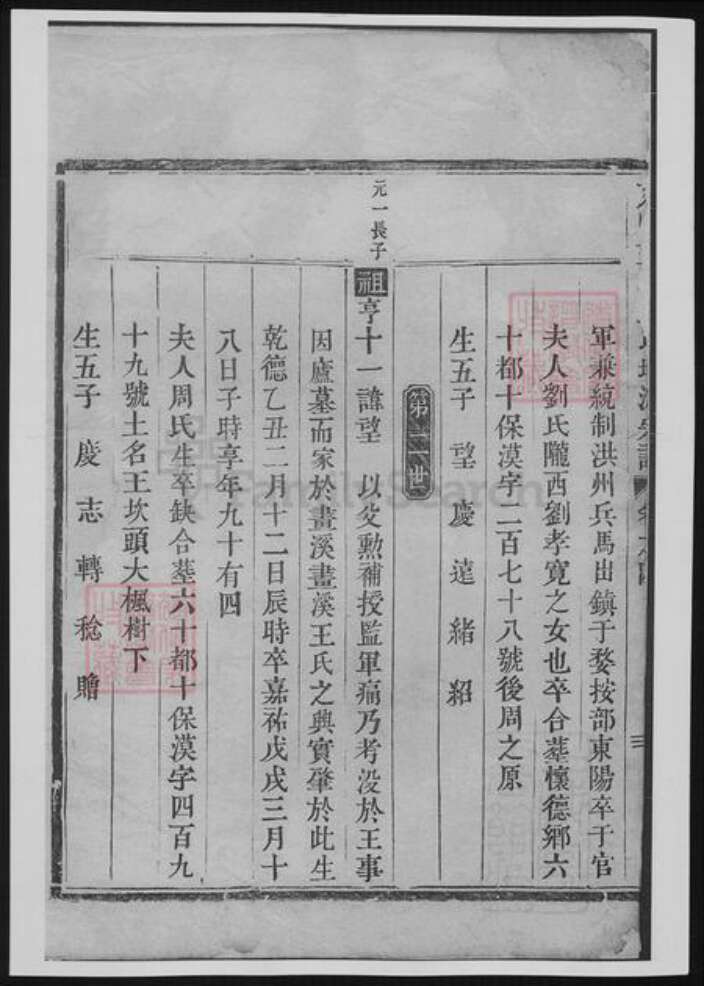 軍兼統制洪州兵馬出鎮于婺按部東陽卒于官
夫人劉氏隴西劉孝寬之女也卒合塟懷德鄉六
十都十保漠字二百七十八號後周之原
生五子 望 慶 達 緒 紹
第二世
元一長子
祖亨十一諱望 以父勲補授監軍痛乃考没於王事
因廬墓而家於畫溪畫溪王氏之興實肇於此生
乾德乙丑二月十二日辰時卒嘉祐戊戌三月十
八日子時享年九十有四
夫人周氏生卒缺合塟六十都十保漠字四百九
十九號土名王坎頭大楓樹下
生五子 慶 志 轉 稔 贍
FamilySearch